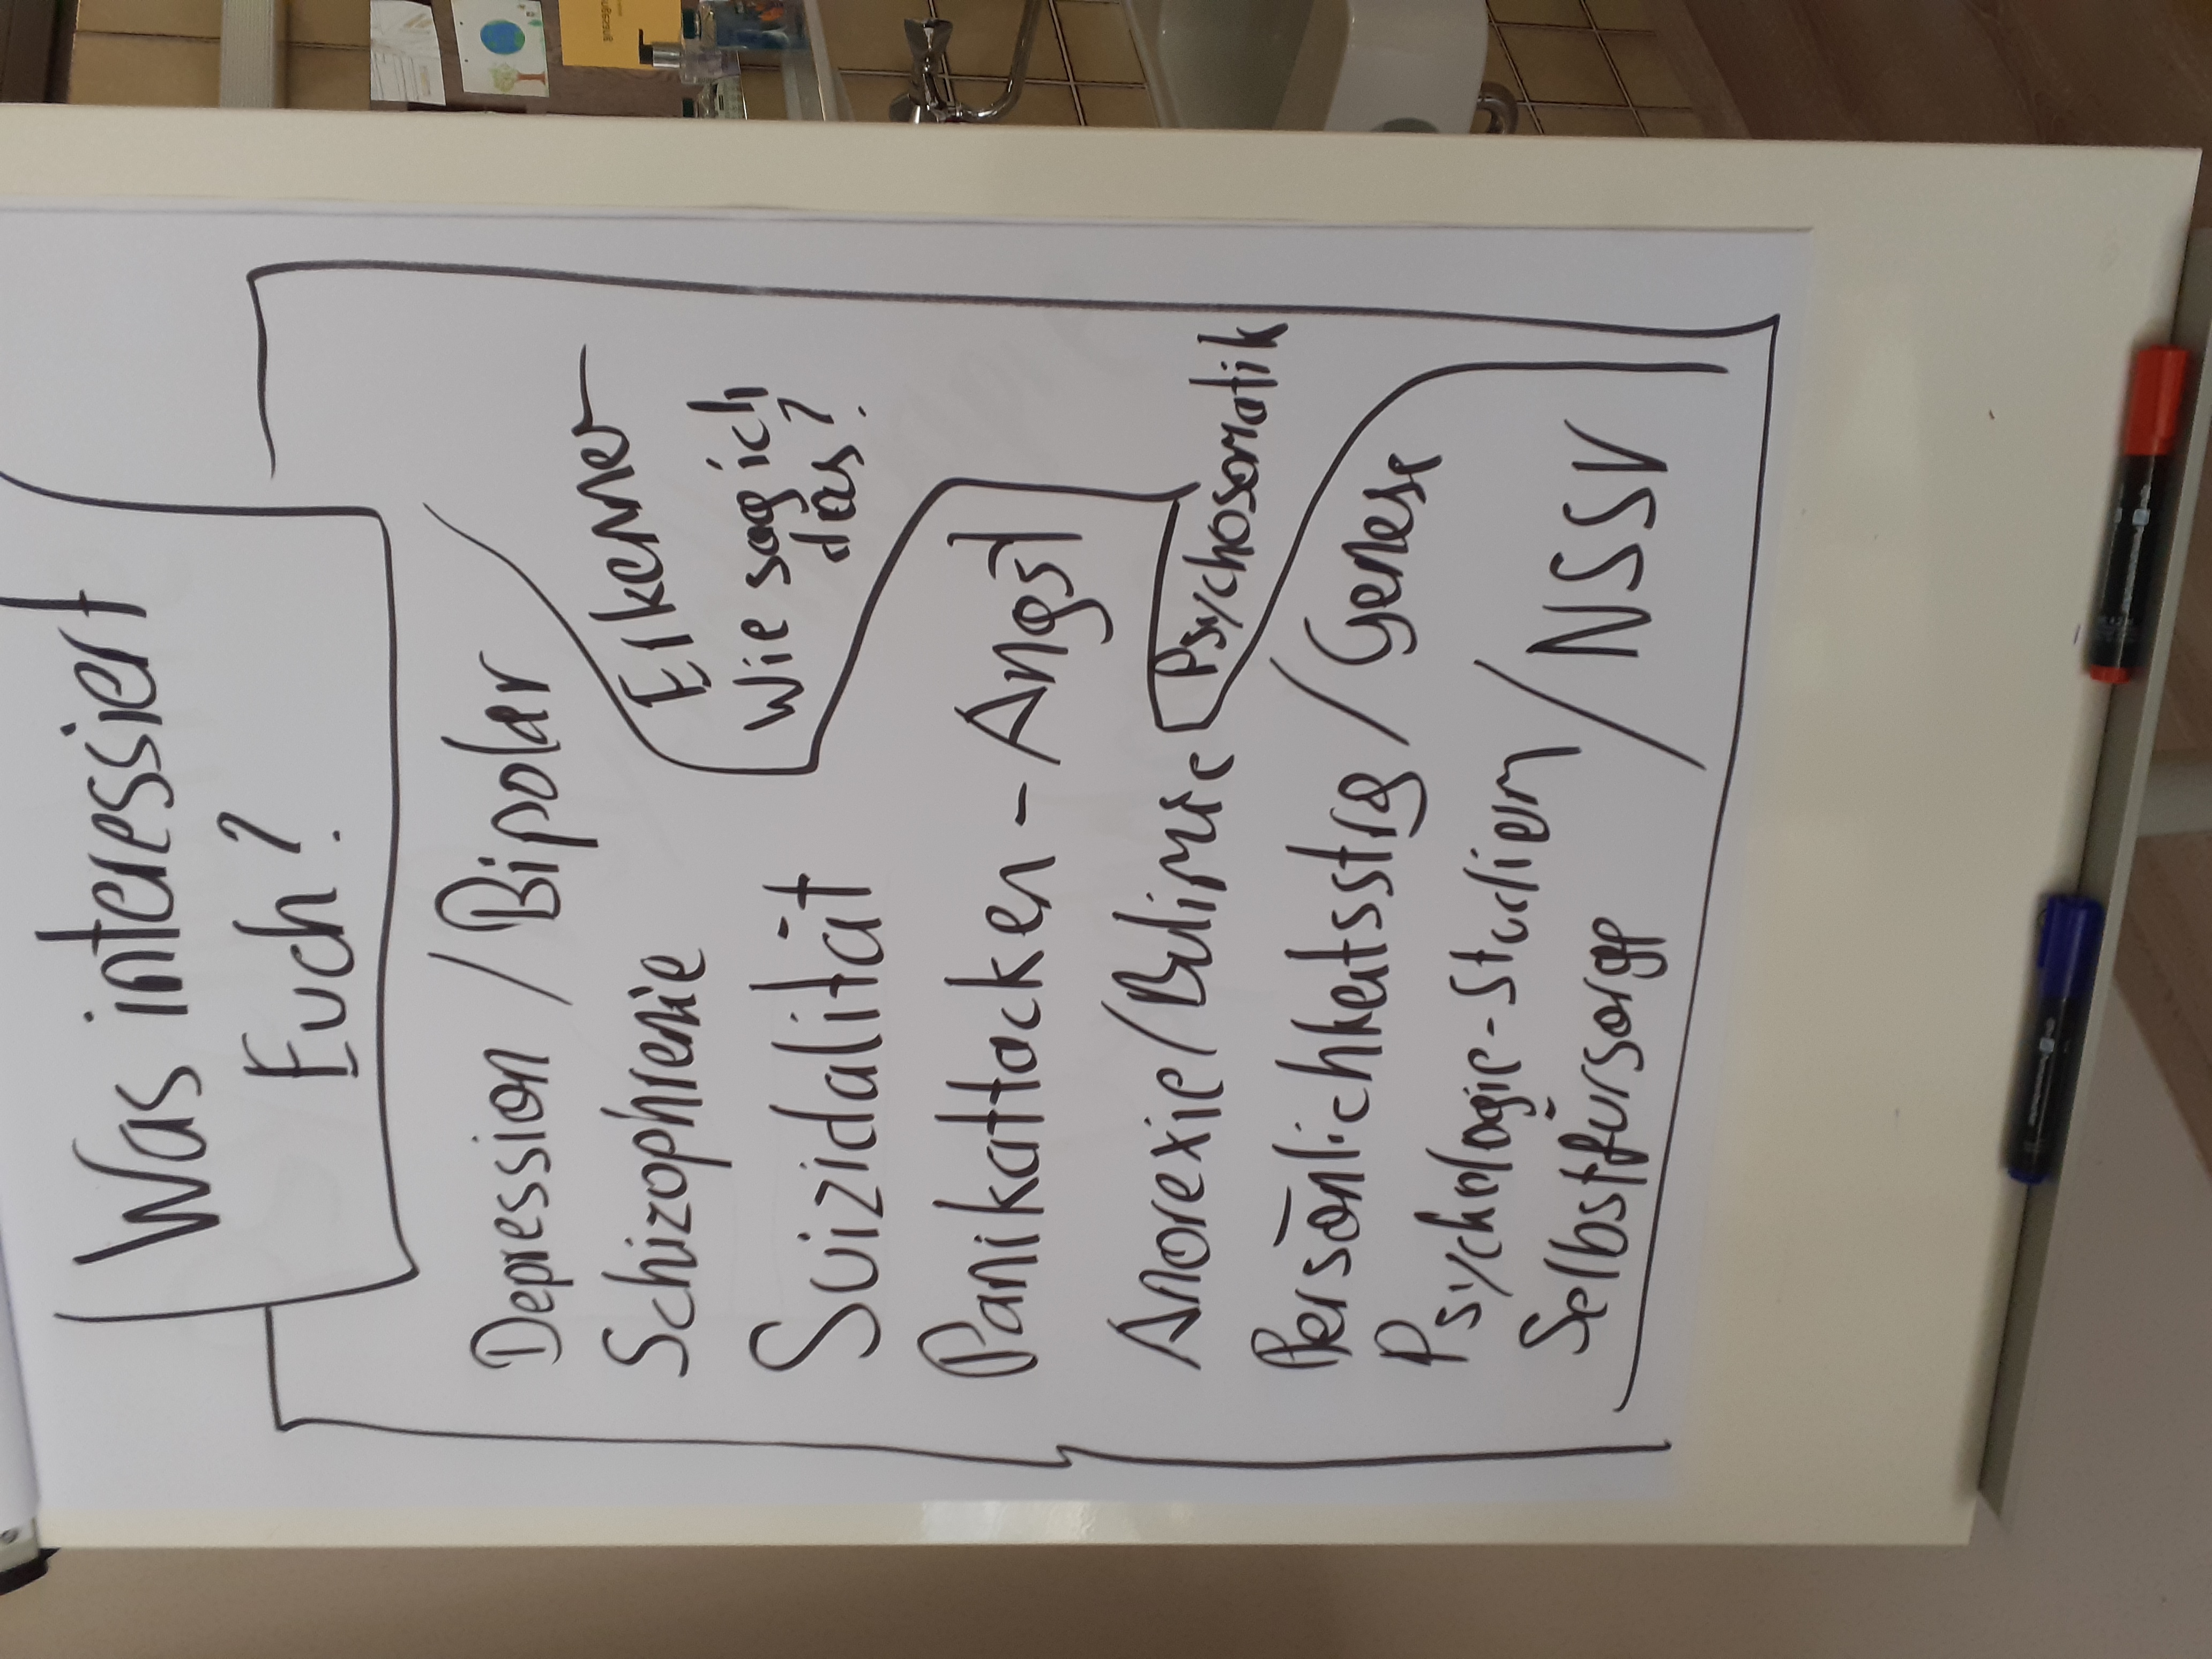 Was interessiert
Euch?
Depression / Bipolar
Schizophrenie
Erkennen
Wie sag ich
das?
Suizidalität
Panikattacken - Angst
Anorexie / Bulimie
Psychosomatik
Persönlichkeitsstrg / Genese
Psychologie - Studien
Selbstfürsorge / NSSV